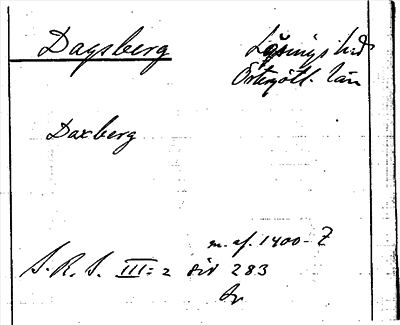 Dagsberg
Lösings hd
Östergötl. län
Daxberg
m. af. 1400-t
S. R. S. III:2 sid 283